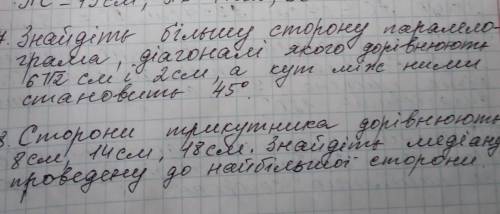 7. Знайдіть більшу сторону паралело-
грама, діагоналі якого дорівнюють
6√2 см і 2см, а кут між ними
становить 45°
8. Сторони трикутника дорівнюють
8см, 14см, 18см. Знайдіть медіану
проведену до найбільшої сторони.